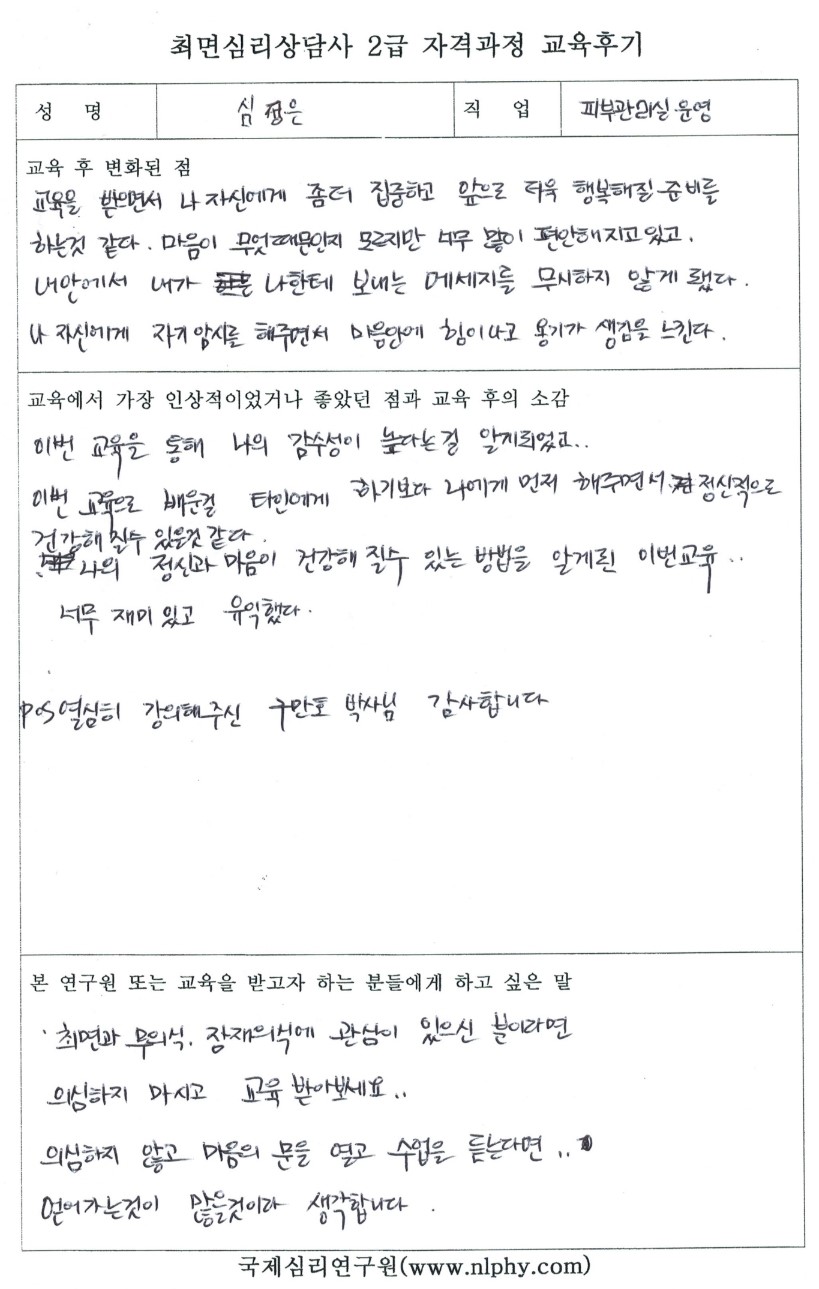 최면심리상담사 2급 자격과정 교육후기
성 명 심정은 직 업 피부관리실 운영
교육 후 변화된 점
교육을 받으면서 나 자신에게 좀더 집중하고 앞으로 더욱 행복해질 준비를
하는것 같다. 마음이 무엇때문인지 모르지만 너무 많이 편안해지고 있고.
내안에서 내가 나한테 보내는 메세지를 무시하지 않게 됐다.
나 자신에게 자기암시를 해주면서 마음안에 힘이나고 용기가 생김을 느낀다.
교육에서 가장 인상적이었거나 좋았던 점과 교육 후의 소감
이번 교육을 통해 나의 감수성이 높다는걸 알게되었고..
이번 교육으로 배운걸 타인에게 하기보다 나에게 먼저 해주면서 정신적으로
건강해 질수 있을것 같다.
나의 정신과 마음이 건강해 질수 있는 방법을 알게된 이번교육..
너무 재미 있고 유익했다.
P.S 열심히 강의해주신 구만호 박사님 감사합니다
본 연구원 또는 교육을 받고자 하는 분들에게 하고 싶은 말
· 최면과 무의식. 잠재의식에 관심이 있으신 분이라면
의심하지 마시고 교육 받아보세요..
의심하지 않고 마음의 문을 열고 수업을 듣는다면..
얻어가는것이 많을것이라 생각합니다.
국제심리연구원(www.nlphy.com)